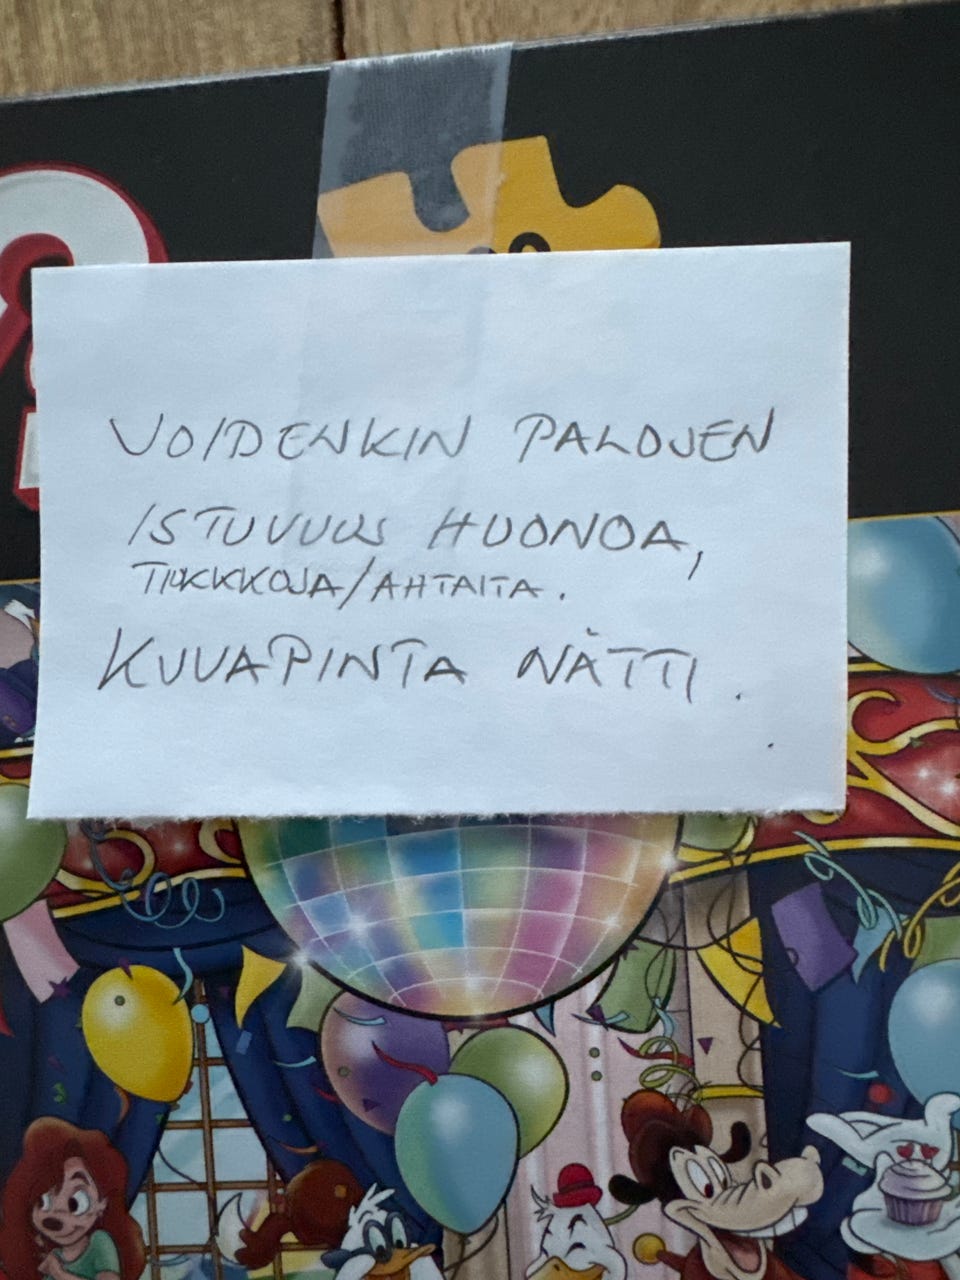 VOIDENKIN PALOJEN
ISTUVUUS HUONOA,
TIUKKKOJA/AHTAITA.
KUVAPINTA NÄTTI.